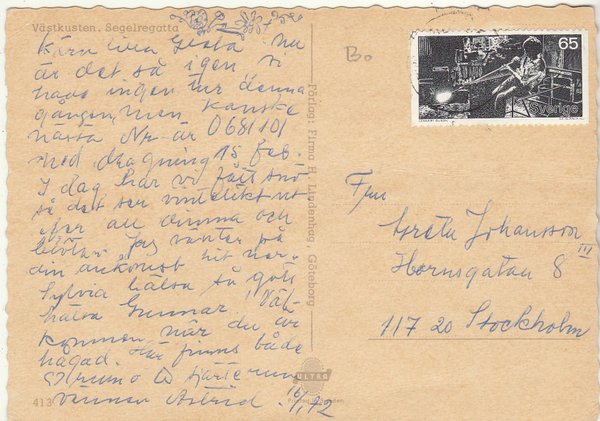 Västkusten. Segelregatta
Kära lilla Greta nu
är det så igen vi
hade ingen tur denna
gången, men kanske
nästa Nr är 0681101
med dragning 15 feb.
I dag har vi fått snö
så det ser vinterlikt ut
efter all dimma och
blöta. Jag väntar på
din ankomst hit när
Sylvia hälsa så gott
hälsa Gunnar! Väl-
kommen när du är
hågad. Här finns både
och
vännen Astrid
413
ULTRA
Förlag: Firma H. Lindenhag Göteborg
Bo
65
Sverige
Fru
Greta Johansson
Hornsgatan 8 III
117 20 Stockholm